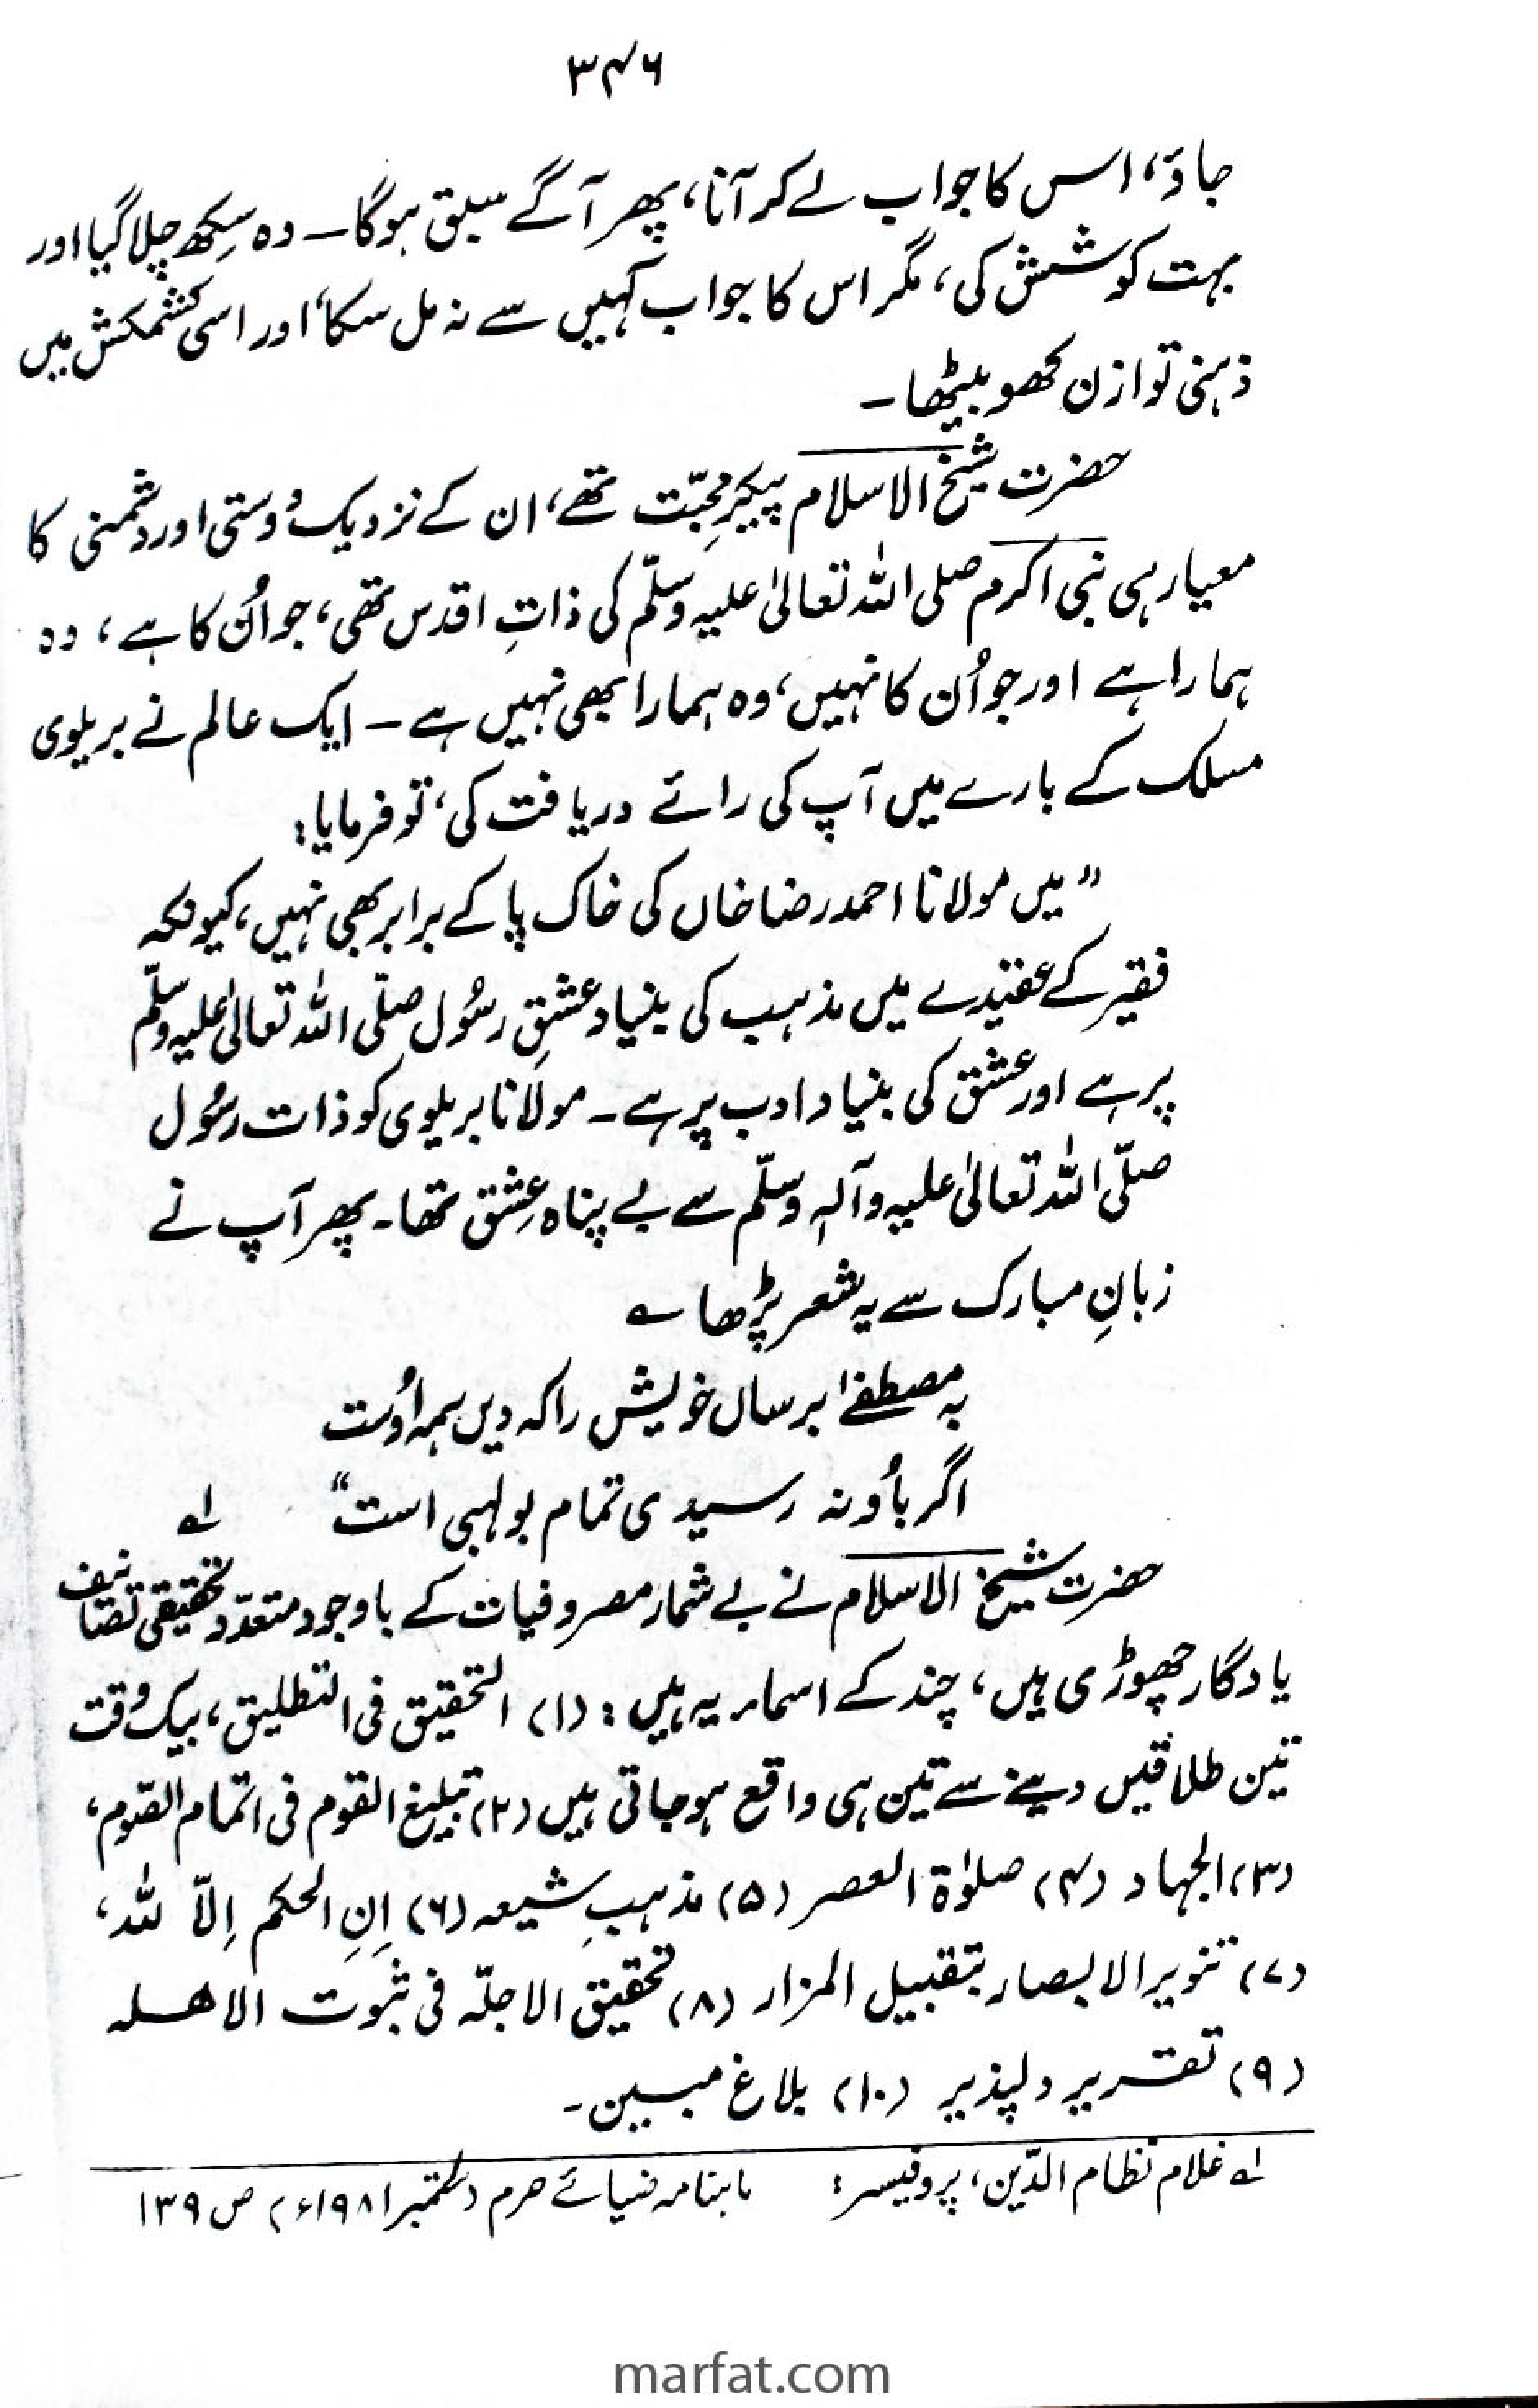 ۳۴۶
جاؤ، اس کا جواب لے کر آنا، پھر آگے سبق ہوگا۔ وہ سِکھ چلا گیا اور
بہت کوشش کی، مگر اس کا جواب کہیں سے نہ مل سکا، اور اسی کشمکش میں
ذہنی توازن کھو بیٹھا۔
حضرت شیخ الاسلام پیکرِ محبّت تھے، ان کے نزدیک دوستی اور دشمنی کا
معیار ہی نبی اکرم صلی اللہ تعالیٰ علیہ وسلّم کی ذاتِ اقدس تھی، جو اُن کا ہے، وہ
ہمارا ہے اور جو اُن کا نہیں، وہ ہمارا بھی نہیں ہے۔ ایک عالم نے بریلوی
مسلک کے بارے میں آپ کی رائے دریافت کی، تو فرمایا:
"میں مولانا احمد رضا خاں کی خاک پا کے برابر بھی نہیں، کیونکہ
فقیر کے عقیدے میں مذہب کی بنیاد عشقِ رسُول صلّی اللہ تعالیٰ علیہ وسلّم
پر ہے اور عشق کی بنیاد ادب پر ہے۔ مولانا بریلوی کو ذات رسُول
صلّی اللہ تعالیٰ علیہ وآلہٖ وسلّم سے بے پناہ عِشق تھا۔ پھر آپ نے
زبانِ مبارک سے یہ شعر پڑھا ؎
بہ مصطفےٰ برساں خویش را کہ دیں ہمہ اُوست
اگر باُو نہ رسیدی تمام بولہبی است" لہ
حضرت شیخ الاسلام نے بے شمار مصروفیات کے باوجود متعدّد تحقیقی تصانیف
یادگار چھوڑی ہیں، چند کے اسماء یہ ہیں: (۱) التحقیق فی التطلیق، بیک وقت
تین طلاقیں دینے سے تین ہی واقع ہو جاتی ہیں (۲) تبلیغ القوم فی اتمام الصّوم،
(۳) الجہاد (۴) صلوٰۃ العصر (۵) مذہبِ شیعہ (۶) اِنِ الحکم اِلّا للہ،
(۷) تنویر الابصار بتقبیل المزار (۸) تحقیق الاجلّہ فی ثبوت الاھلہ
(۹) تقریر دلپذیر (۱۰) بلاغ مبین۔
لہ غلام نظام الدّین، پروفیسر: ماہنامہ ضیائے حرم (ستمبر ۱۹۸۱ء) ص ۱۳۹
marfat.com